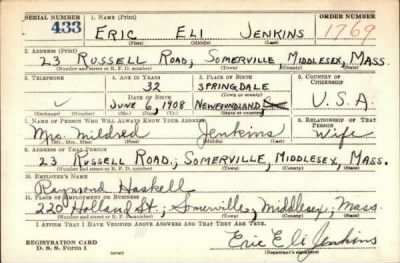 SERIAL NUMBER 1. NAME (Print) ORDER NUMBER
433 ERIC ELI JENKINS 1769
(First) (Middle) (Last)
2. ADDRESS (Print)
23 RUSSELL ROAD, SOMERVILLE MIDDLESEX, MASS.
(Number and street or R. F. D. number) (Town) (County) (State)
3. TELEPHONE 4. AGE IN YEARS 5. PLACE OF BIRTH 6. COUNTRY OF CITIZENSHIP
32 SPRINGDALE
DATE OF BIRTH (Town or county)
JUNE 6, 1908 NEWFOUNDLAND, U.S.A.
(Exchange) (Number) (Mo.) (Day) (Yr.) (State or country)
7. NAME OF PERSON WHO WILL ALWAYS KNOW YOUR ADDRESS 8. RELATIONSHIP OF THAT PERSON
Mrs. Mildred Jenkins Wife
(Mr., Mrs., Miss) (First) (Middle) (Last)
9. ADDRESS OF THAT PERSON
23 RUSSELL ROAD., SOMERVILLE, MIDDLESEX, MASS.
(Number and street or R. F. D. number) (Town) (County) (State)
10. EMPLOYER'S NAME
Raymond Haskell
11. PLACE OF EMPLOYMENT OR BUSINESS
220 Holland St., Somerville, Middlesex, Mass.
(Number and street or R. F. D. number) (Town) (County) (State)
I AFFIRM THAT I HAVE VERIFIED ABOVE ANSWERS AND THAT THEY ARE TRUE.
REGISTRATION CARD
D. S. S. Form 1 (over) Eric Eli Jenkins